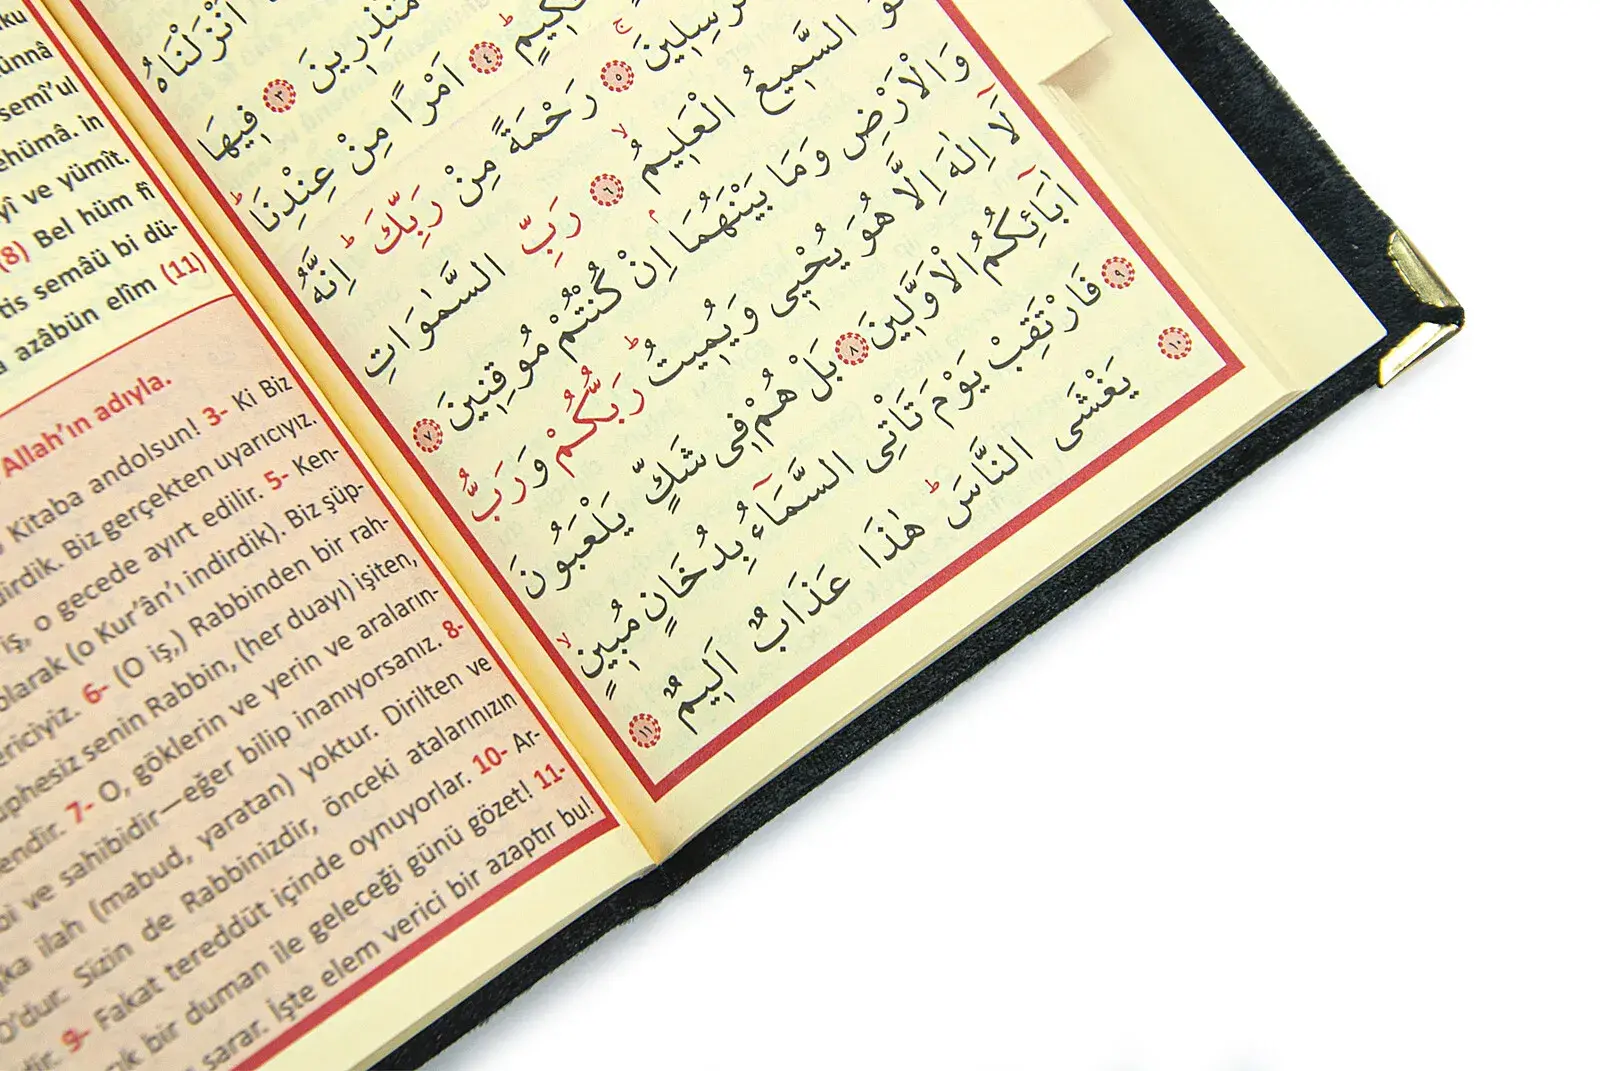 ku
ünnâ
semî'ul
ehümâ. in
yî ve yümît.
(8) Bel hüm fî
tis semâü bi dü-
azâbün elîm (11)
Allah'ın adıyla.
Kitaba andolsun! 3- Ki Biz
dirdik. Biz gerçekten uyarıcıyız.
iş, o gecede ayırt edilir. 5- Ken-
olarak (o Kur'ân'ı indirdik). Biz şüp-
ericiyiz. 6- (O iş,) Rabbinden bir rah-
üphesiz senin Rabbin, (her duayı) işiten,
endir. 7- O, göklerin ve yerin ve araların-
bi ve sahibidir—eğer bilip inanıyorsanız. 8-
şka ilah (mabud, yaratan) yoktur. Dirilten ve
O'dur. Sizin de Rabbinizdir, önceki atalarınızın
dir. 9- Fakat tereddüt içinde oynuyorlar. 10- Ar-
çık bir duman ile geleceği günü gözet! 11-
sarar. İşte elem verici bir azaptır bu!
اَنْزَلْنَاهُ
مُنْذِرِينَ ﴿٣﴾ فِيهَا
حَكِيمٍ ﴿٤﴾ اَمْرًا مِنْ عِنْدِنَا
مُرْسِلِينَ ﴿٥﴾ رَحْمَةً مِنْ رَبِّكَ اِنَّهُ
هُوَ السَّمِيعُ الْعَلِيمُ ﴿٦﴾ رَبِّ السَّمٰوَاتِ
وَالْاَرْضِ وَمَا بَيْنَهُمَا اِنْ كُنْتُمْ مُوقِنِينَ ﴿٧﴾
لَٓا اِلٰهَ اِلَّا هُوَ يُحْيِى وَيُمِيتُ رَبُّكُمْ وَرَبُّ
اٰبَٓائِكُمُ الْاَوَّلِينَ ﴿٨﴾ بَلْ هُمْ فِى شَكٍّ يَلْعَبُونَ
﴿٩﴾ فَارْتَقِبْ يَوْمَ تَاْتِى السَّمَٓاءُ بِدُخَانٍ مُبِينٍ
﴿١٠﴾ يَغْشَى النَّاسَ هٰذَا عَذَابٌ اَلِيمٌ ﴿١١﴾